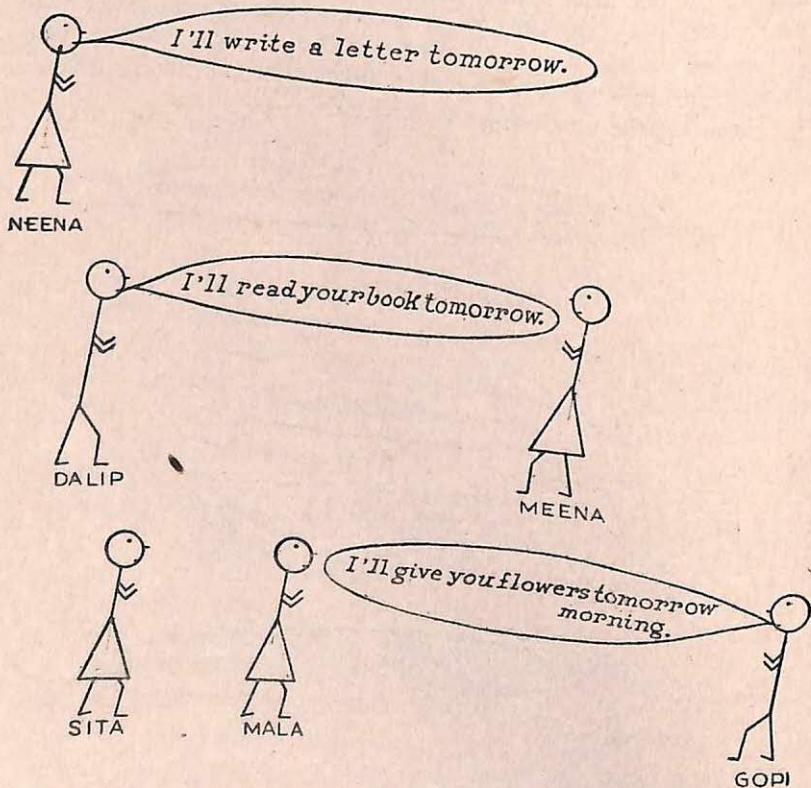 I'll write a letter tomorrow.
NEENA
I'll read your book tomorrow.
DALIP
MEENA
I'll give you flowers tomorrow
morning.
SITA
MALA
GOPI